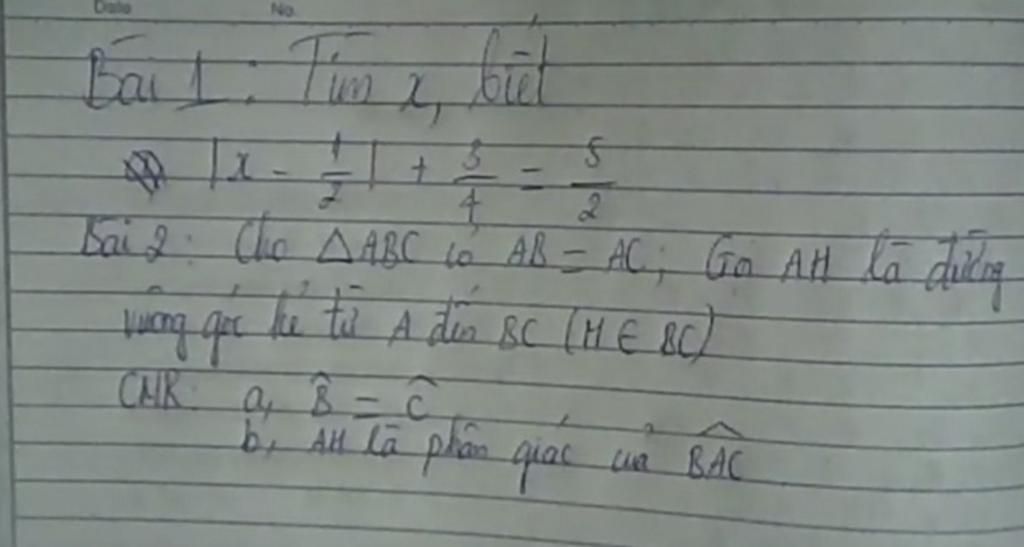 Date No.
Bài 1: Tìm x, biết
|x - 1/2| + 3/4 = 5/2
Bài 2: Cho △ABC có AB = AC; Gọi AH là đường
vuông góc kẻ từ A đến BC (H ∈ BC)
CMR: a, B̂ = Ĉ
b, AH là phân giác của B̂AC